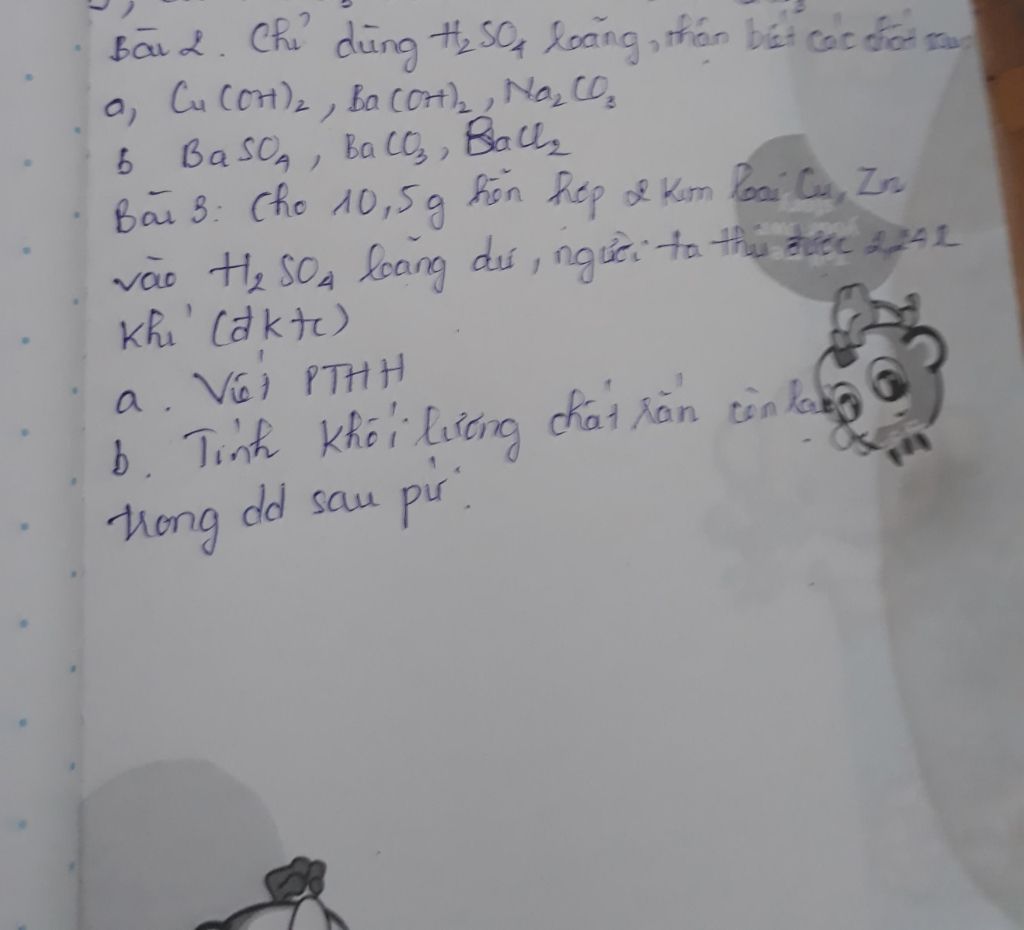 Bài 2. Chỉ dùng H₂SO₄ loãng, nhận biết các chất sau
a, Cu(OH)₂, Ba(OH)₂, Na₂CO₃
b BaSO₄, BaCO₃, BaCl₂
Bài 3: Cho 10,5g hỗn hợp 2 kim loại Cu, Zn
vào H₂SO₄ loãng dư, người ta thu được 2,24l
khí (đktc)
a. Viết PTHH
b. Tính khối lượng chất rắn còn lại
trong dd sau pư.